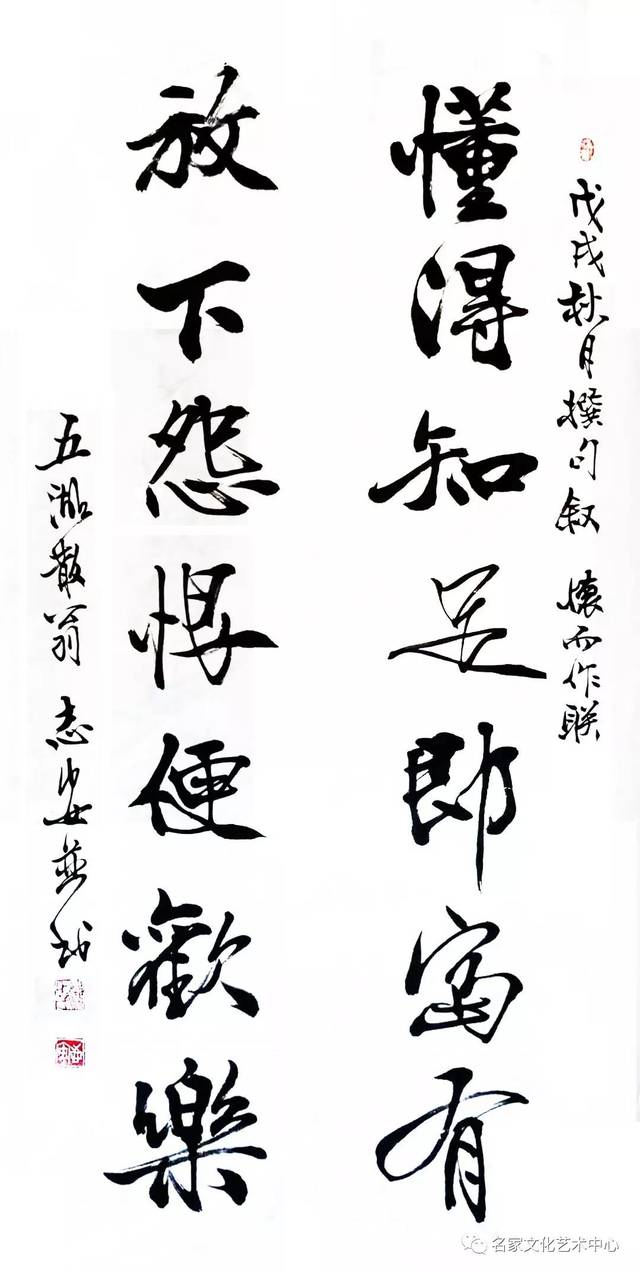 戊戌秋月撰句叙懷而作联
懂得知足即富有
放下怨恨便歡樂
五湖散翁志
名家文化艺术中心